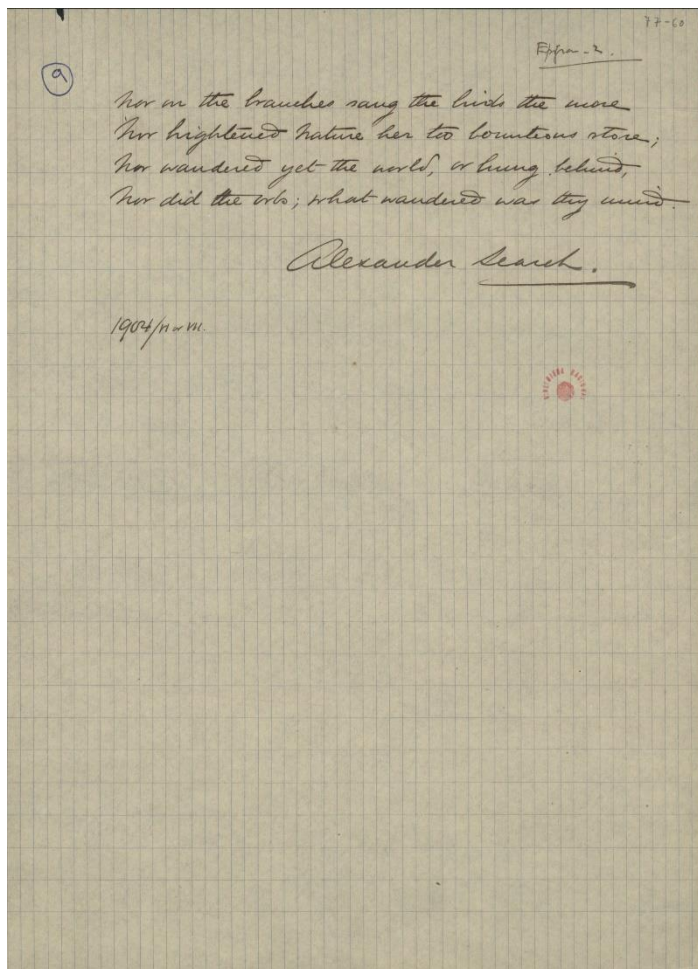 77-60
Epigra-2.
9
Nor on the branches sang the birds the more
Nor hightened Nature her too bounteous store;
Nor wandered yet the world, or hung behind,
Nor did the orbs; what wandered was thy mind.
Alexander Search.
1904/VI or VII.